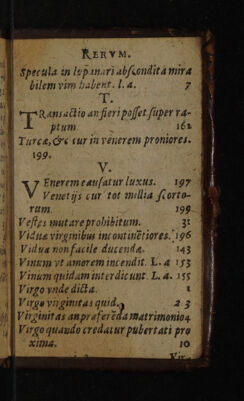 RERVM.
Specula in lupanari abscondita mira
bilem vim habent. l. a. 7
T.
TRansactio an fieri posset super ra-
ptum 162
Turcæ, &c cur in venerem proniores.
199.
V.
VEnerem causatur luxus. 197
Venetijs cur tot millia scorto-
rum. 199
Vestes mutare prohibitum. 31
Viduæ virginibus incontinẽtiores. 196
Vidua non facile ducenda. 143
Vinum vt amorem incendit. L. a 153
Vinum quidam interdicunt. L. a. 155
Virgo vnde dicta. 1
Virgo virginitas quid, 2 3
Virginitas an præferẽda matrimonio 4
Virgo quando credatur pubertati pro
xima. 10
Vir-